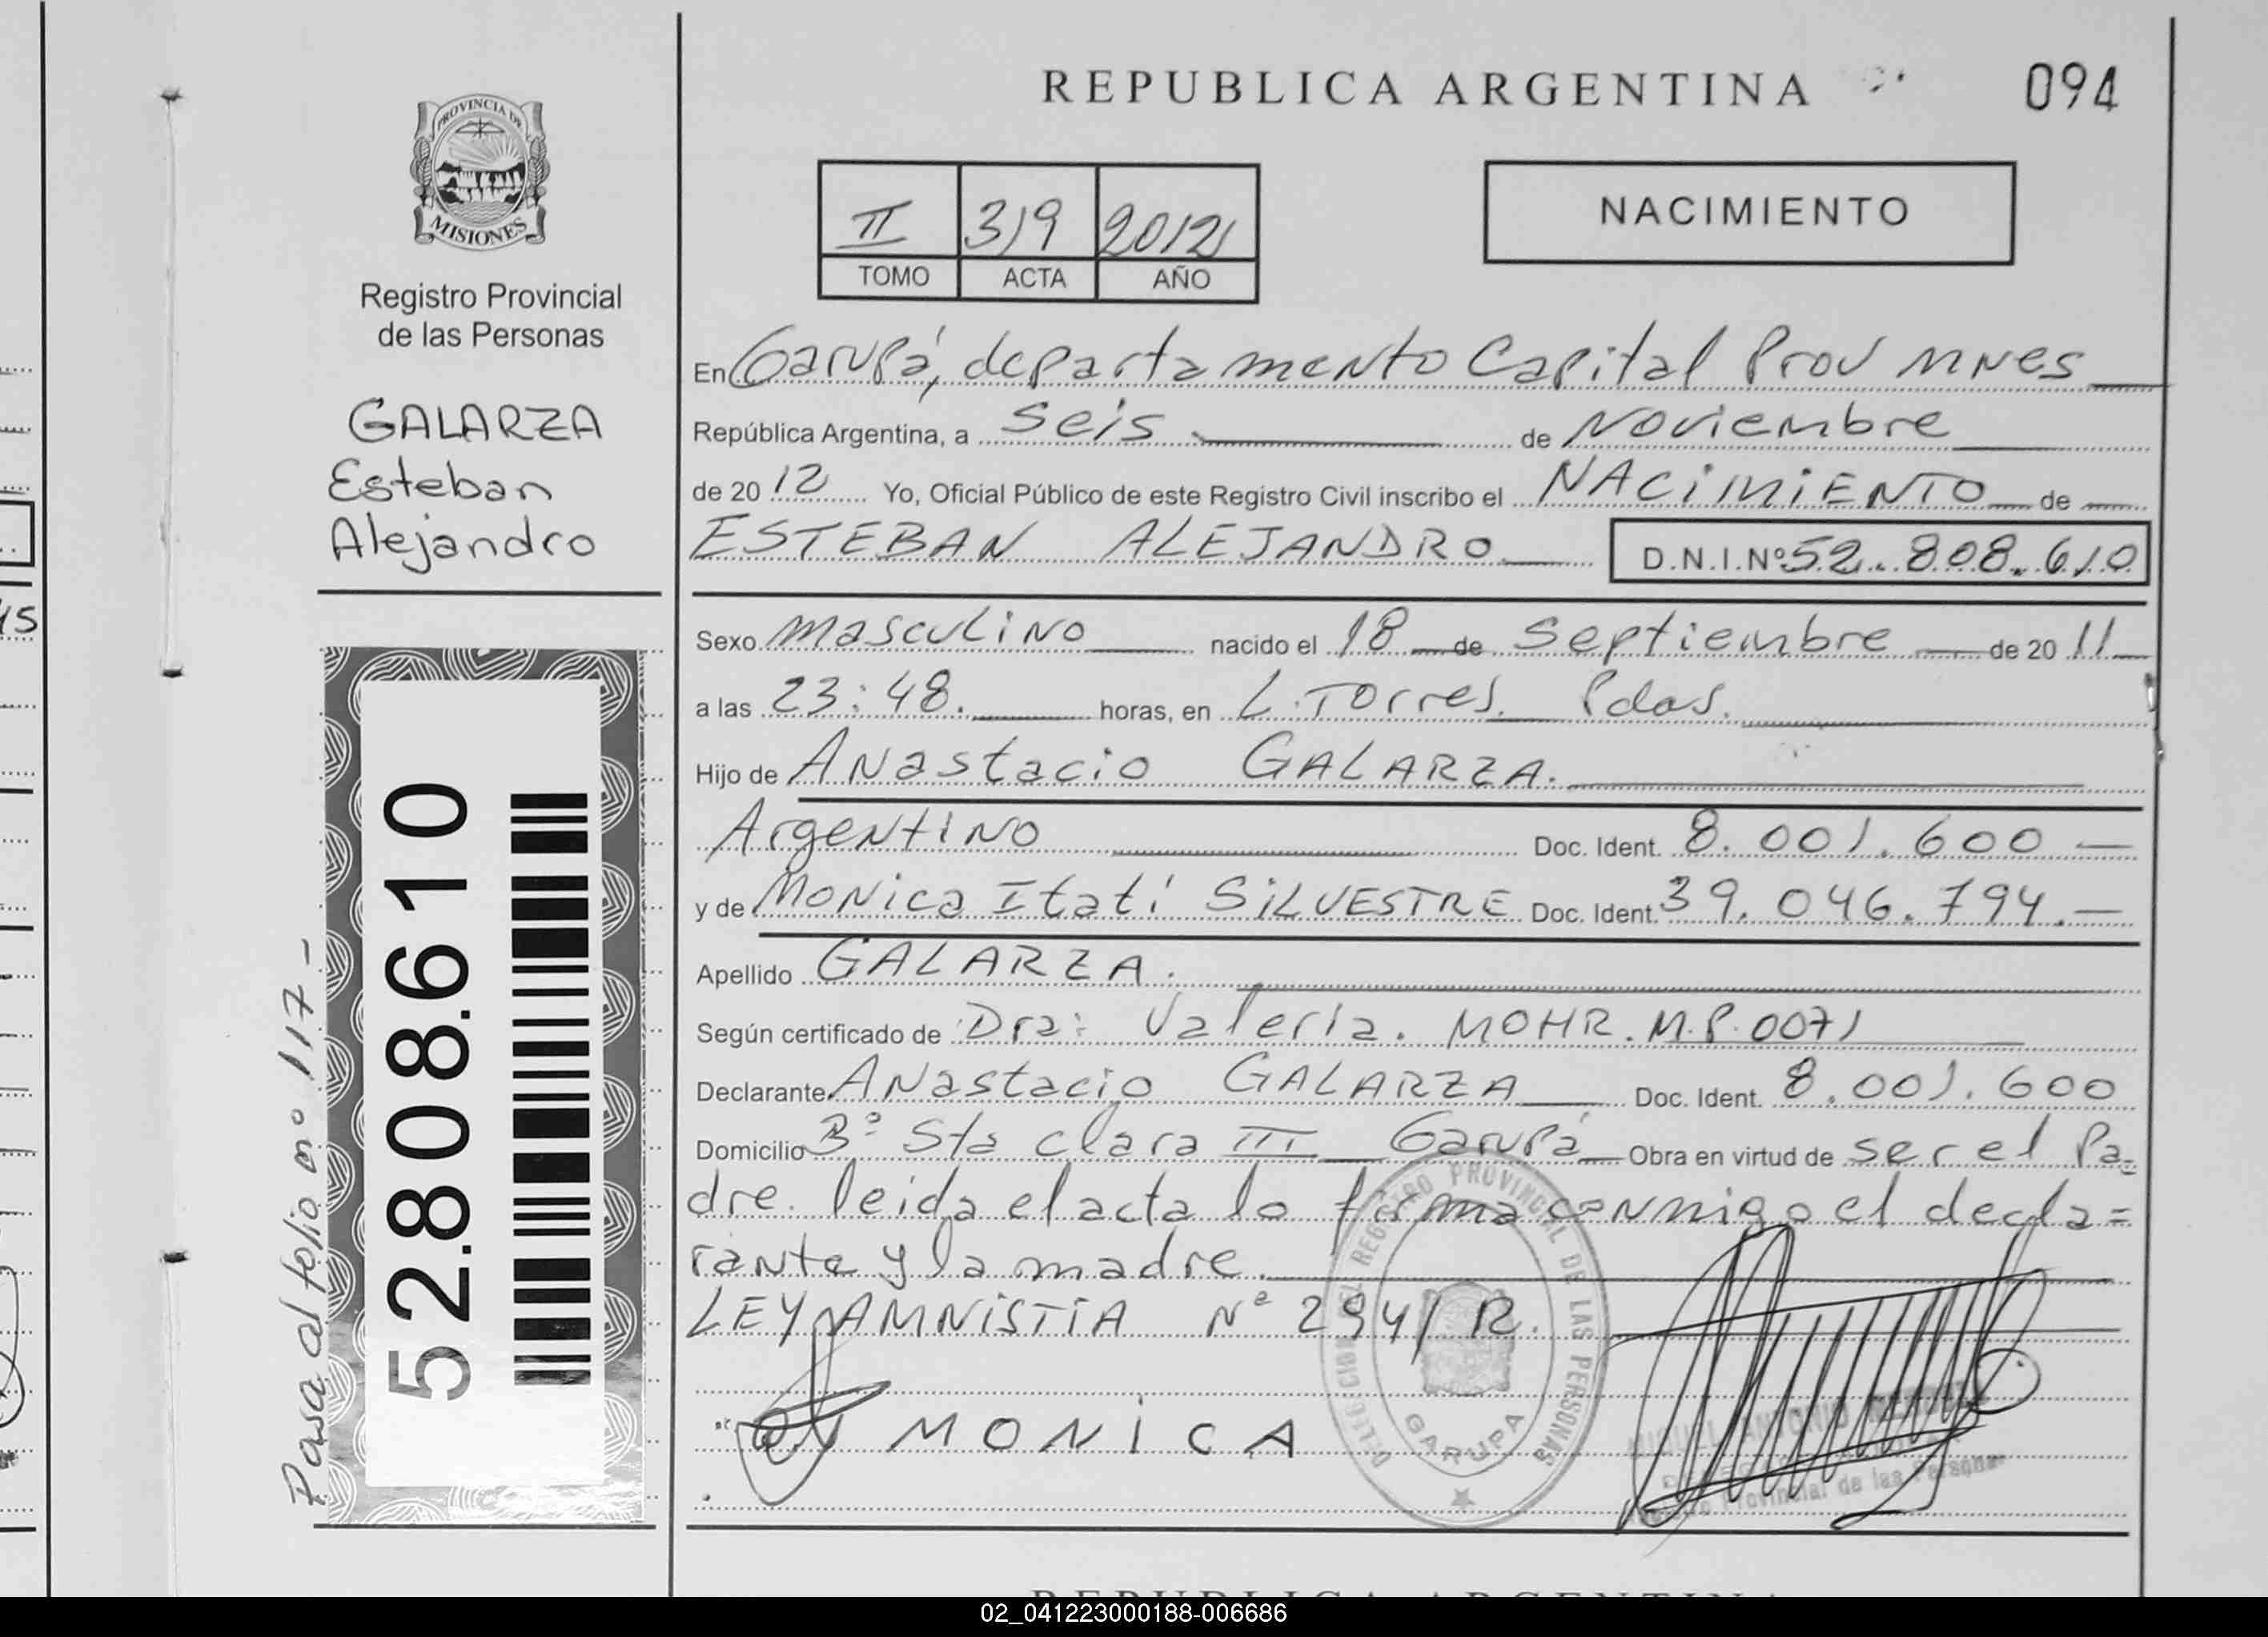 REPUBLICA ARGENTINA
094
PROVINCIA DE
MISIONES
Registro Provincial
de las Personas
II 319 2012
TOMO ACTA AÑO
NACIMIENTO
GALARZA
Esteban
Alejandro
En Garupá, departamento Capital Prov Mnes
República Argentina, a seis de Noviembre
de 2012 Yo, Oficial Público de este Registro Civil inscribo el NACIMIENTO de
ESTEBAN ALEJANDRO D.N.I.Nº 52.808.610
Sexo masculino nacido el 18 de Septiembre de 2011
a las 23:48. horas, en L. Torres. Pdas.
Hijo de Anastacio GALARZA.
Argentino Doc. Ident. 8.001.600
y de Monica Itatí SILVESTRE Doc. Ident. 39.046.794.
Apellido GALARZA.
Según certificado de Dra: Valeria. MOHR. M.P. 0071
Declarante Anastacio GALARZA Doc. Ident. 8.001.600
Domicilio Bº Sta clara III Garupá Obra en virtud de ser el Pa-
dre. leida el acta lo firma conmigo el decla=
rante y la madre.
LEY AMNISTIA Nº 294/12.
MONICA
DELEGACION DEL REGISTRO PROVINCIAL DE LAS PERSONAS
GARUPA
MIGUEL ANTONIO
Provincial de las Personas
52.808.610
Pasa al folio nº 117-
15
REPUBLICA ARGENTINA
02_041223000188-006686